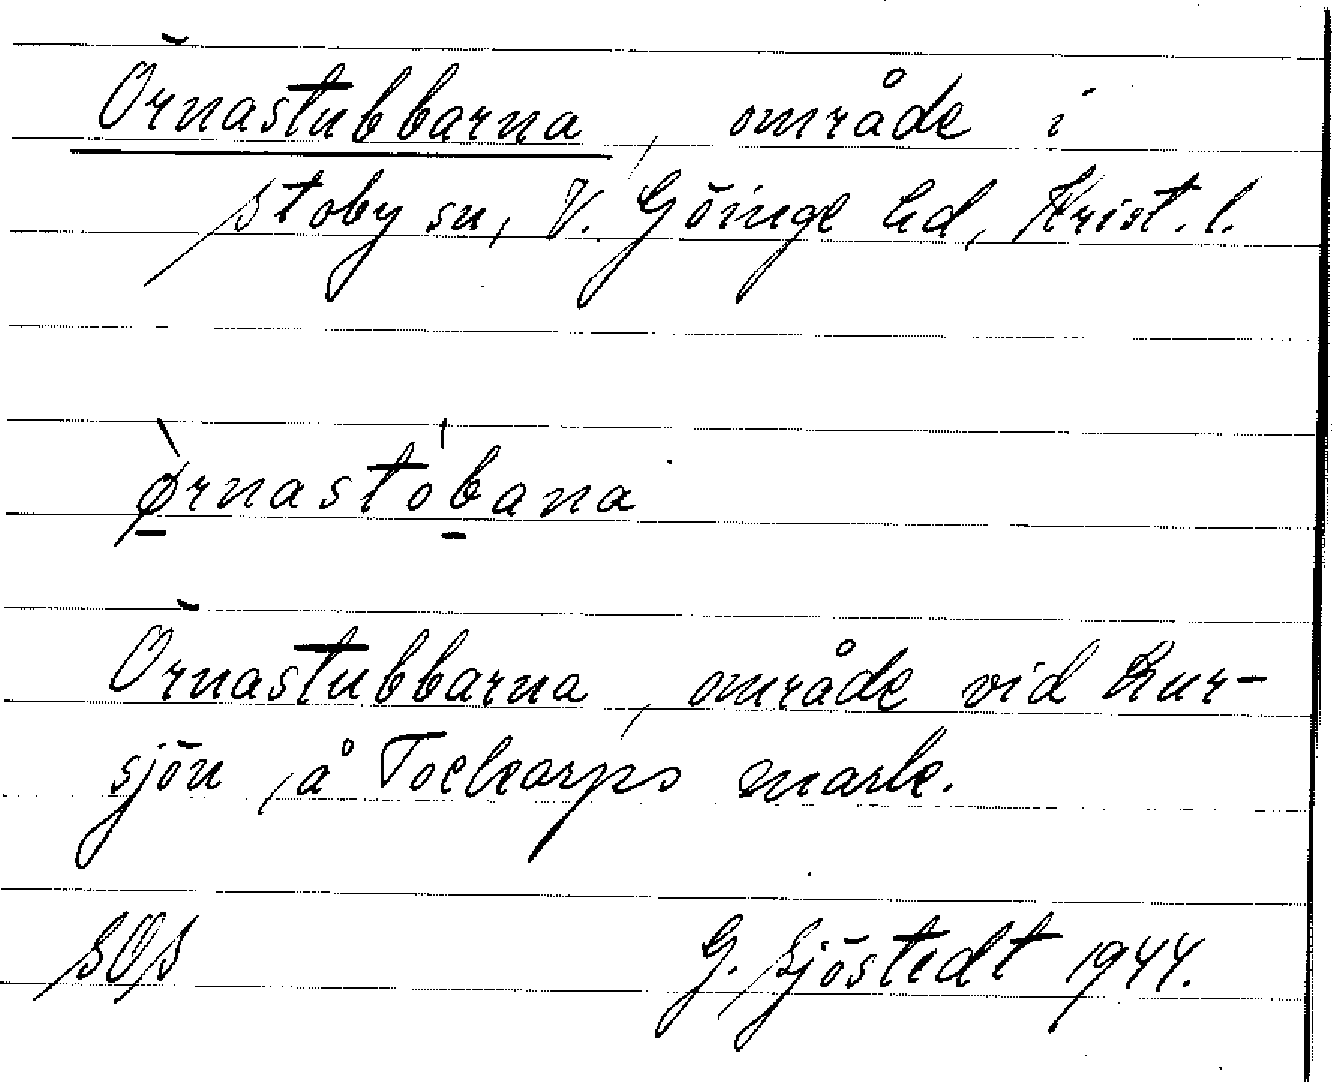 Örnastubbarna, område i
Stoby sn, V. Göinge hd, Krist. l.
ø̀rnastób̠ana
Örnastubbarna, område vid Lur-
sjön, å Tockarps mark.
SOS G. Sjöstedt 1944.